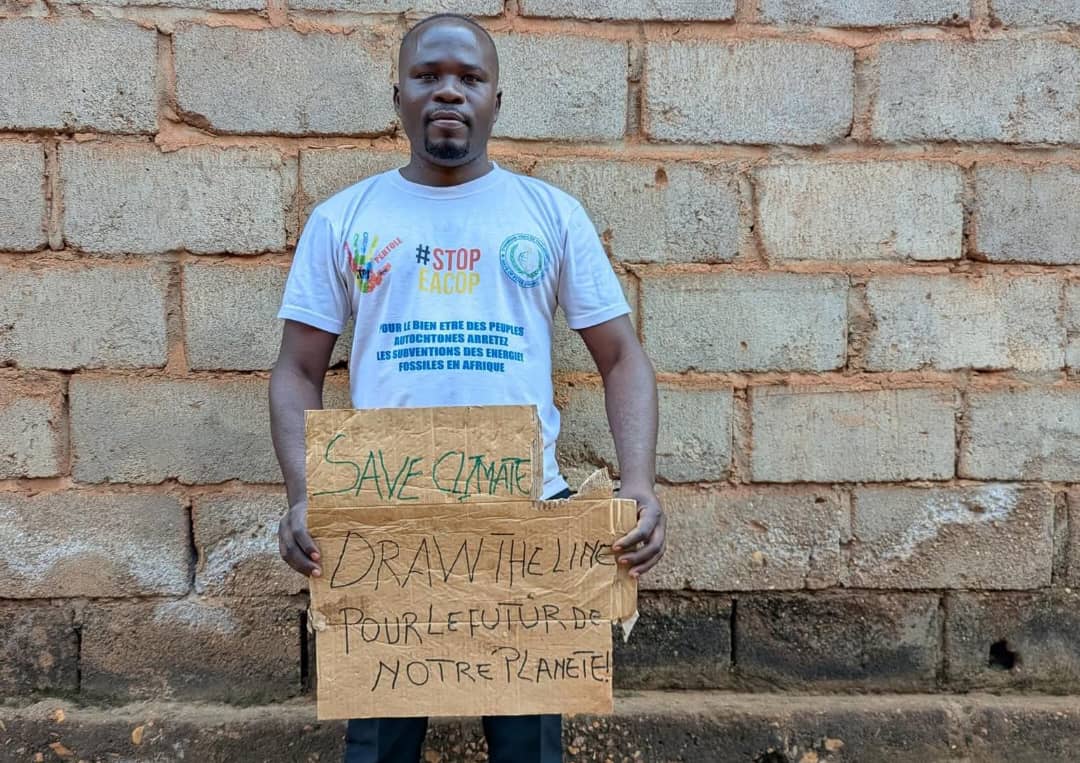 #STOP
EACOP
POUR LE BIEN ETRE DES PEUPLES
AUTOCHTONES ARRETEZ
LES SUBVENTIONS DES ENERGIES
FOSSILES EN AFRIQUE
SAVE CLIMATE
DRAW THE LINE
POUR LE FUTUR DE
NOTRE PLANETE!